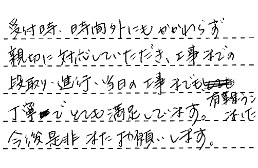 受付時、時間外にもかかわらず
親切に対応していただき、工事までの
段取り・進行、当日の工事までも
丁寧でとても満足しています。
今後是非またお願いします。